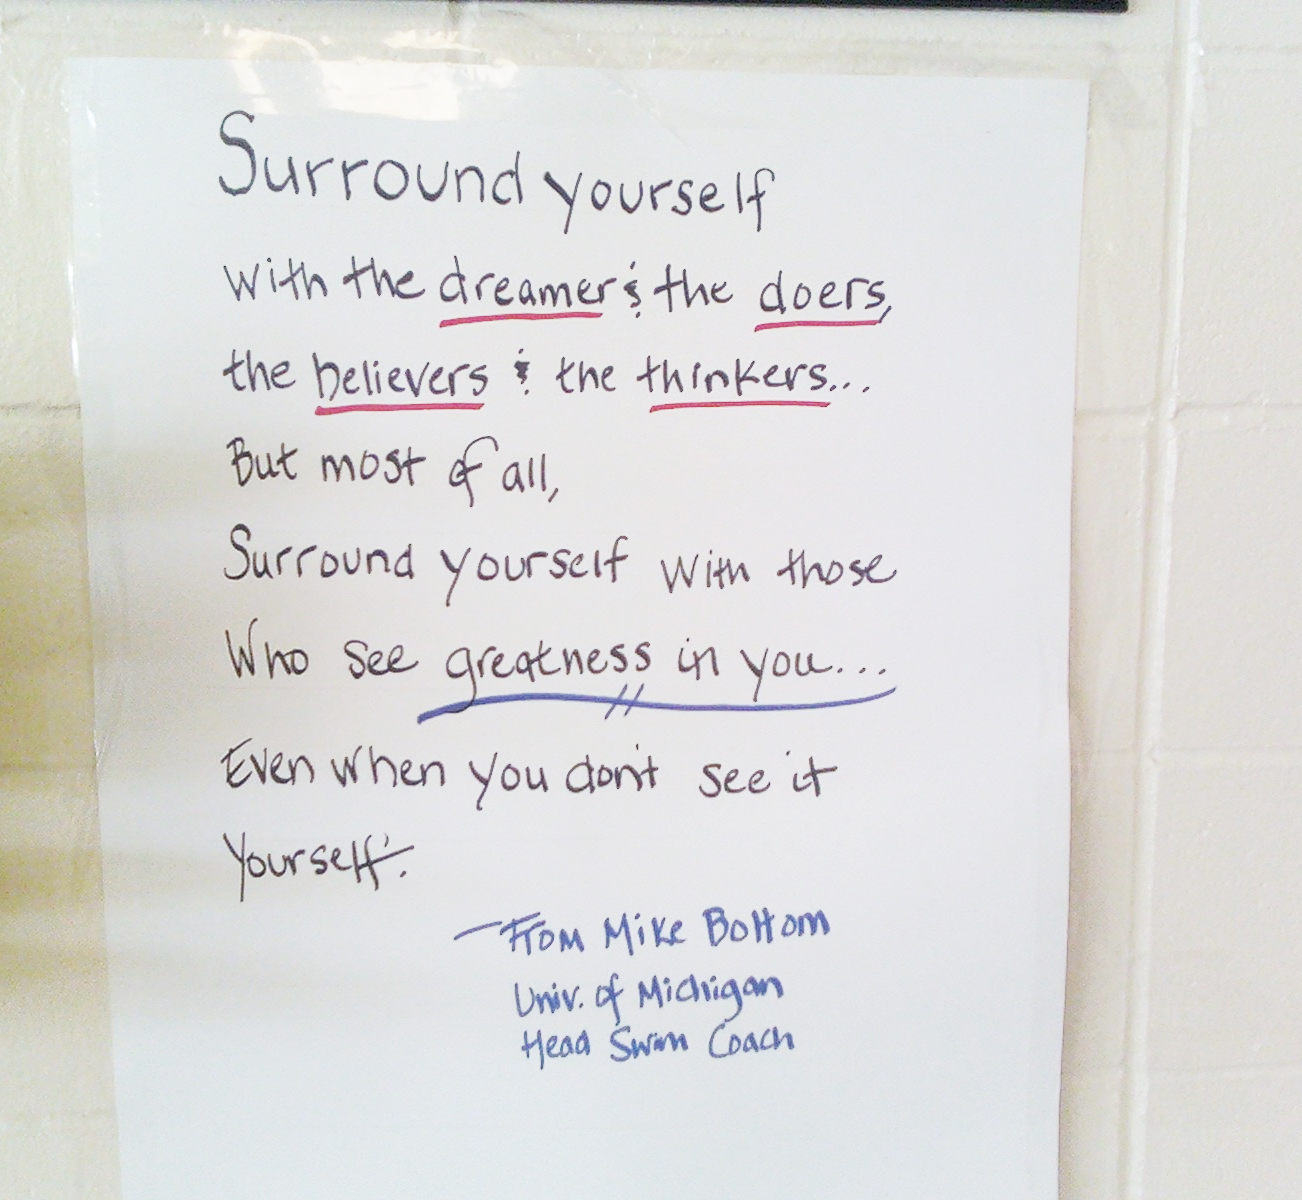 Surround yourself
with the dreamer & the doers,
the believers & the thinkers...
But most of all,
Surround yourself with those
Who see greatness in you...
Even when you don't see it
Yourself.
- From Mike Bottom
Univ. of Michigan
Head Swim Coach